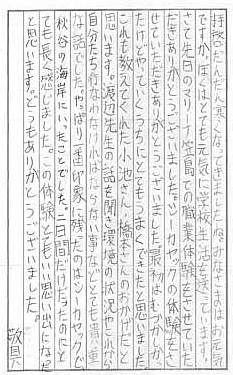 拝啓だんだん寒くなってきましたね。みなさまはお元気
ですか。ぼくはとても元気に学校生活を送っています。
さて先日のマリーナ芝島での職業体験をさせていた
だきありがとうございました。シーカヤックの体験をさ
せていただきありがとうございます。最初はむずかしかっ
たけどやっていくうちにとてもうまくできたと思いました。
これも教えてくれた小池さん、橋本さんのおかげだと
思います。渡辺先生の話を聞き環境の状況やこれから
自分たち行なわなければならない事などとても貴重
な話でした。やっぱり一番印象に残ったのはシーカヤックで
秋谷の海岸にいったことでした。二日間だけだったのにと
ても長く感じました。この体験とてもいい思い出になった
と思います。どうもありがとうございました。
敬具